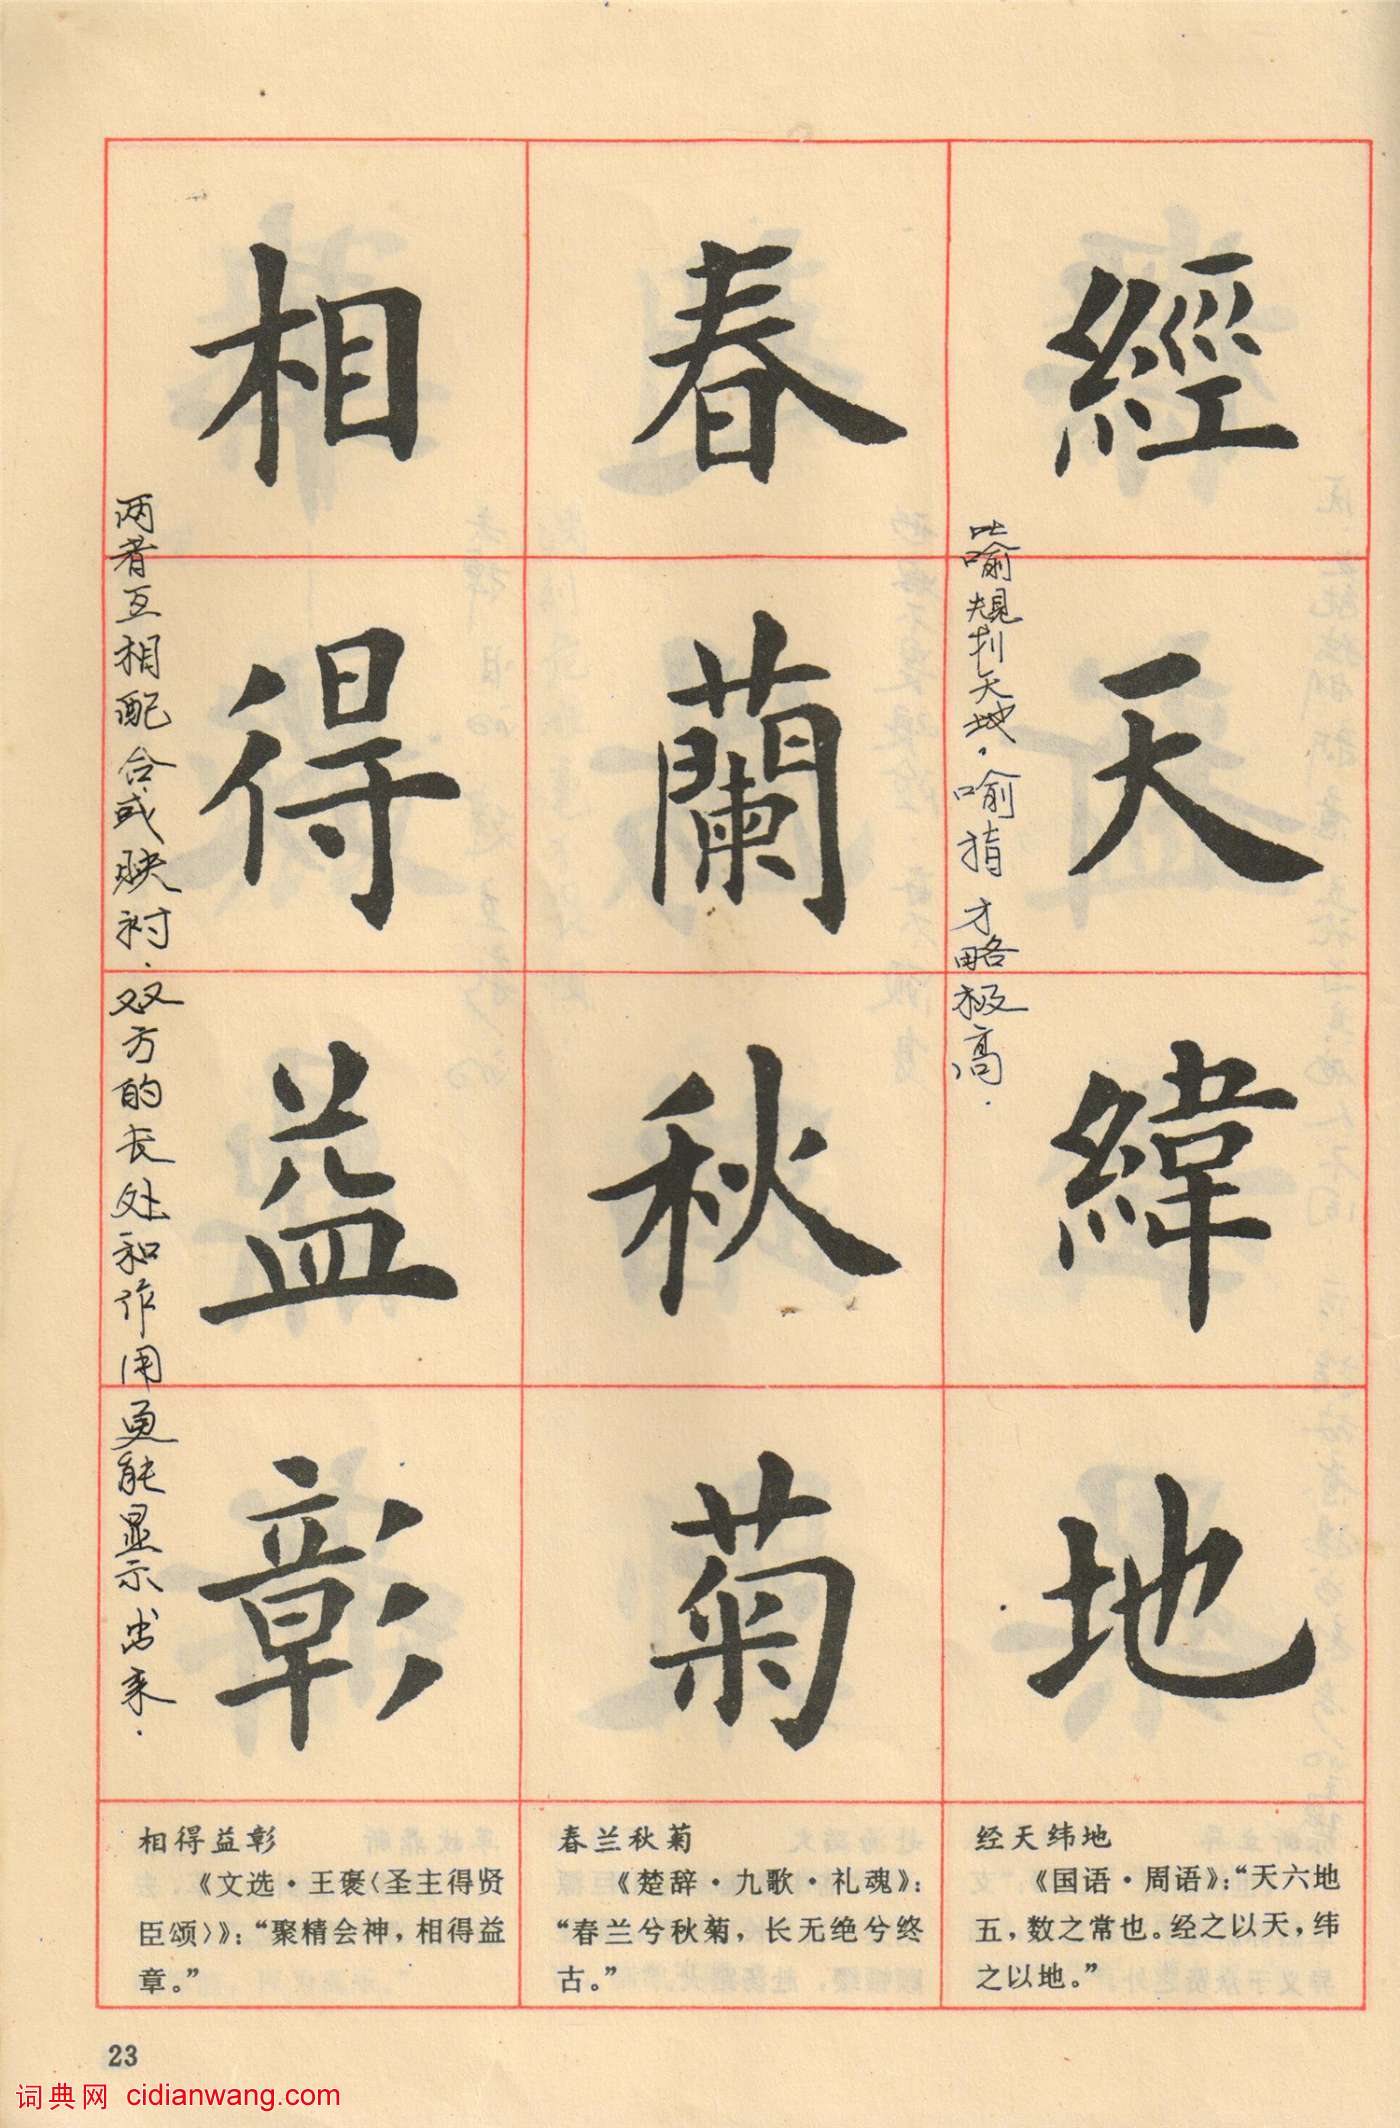 經天緯地
比喻规划天地。喻指才略极高。
春蘭秋菊
相得益彰
两者互相配合或映衬。双方的长处和作用更能显示出来。
经天纬地
《国语·周语》：“天六地
五，数之常也。经之以天，纬
之以地。”
春兰秋菊
《楚辞·九歌·礼魂》：
“春兰兮秋菊，长无绝兮终
古。”
相得益彰
《文选·王褒〈圣主得贤
臣颂〉》：“聚精会神，相得益
章。”
23
词典网 cidianwang.com